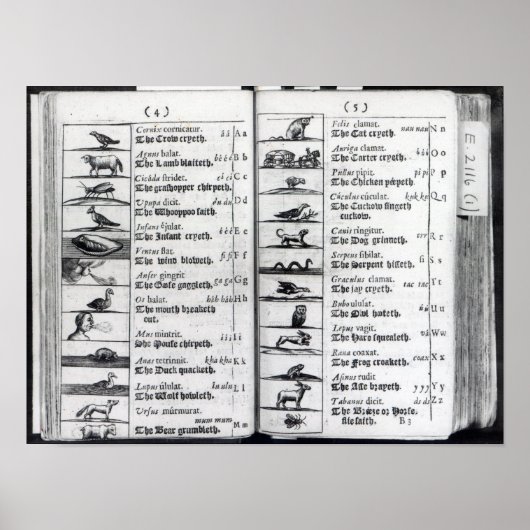 (4)
Cornix cornicatur. á á A a
The Crow cryeth.
Agnus balat. b é é é B b
The Lamb blaiteth.
Cicáda stridet. cì cì C c
The grashopper chirpeth.
Upupa dicit. du du D d
The Whooppoo saith.
Infans éjulat. é é é E e
The Infant cryeth.
Ventus flat. fi fi F f
The wind bloweth.
Anser gingrit. ga ga G g
The Gose gaggleth.
Os halat. háh háh H h
The mouth breaketh
out.
Mus mintrit. í í í I i
The Mouse chirpeth.
Anas tetrinnit. kha kha K k
The Duck quacketh.
Lupus úlulat. lu ulu L l
The Wolf howleth.
Ursus múrmurat.
mum mum M m
The Bear grumbleth.
(5)
Felis clamat. nau nau N n
The Cat cryeth.
Auriga clamat. ó ó ó O o
The Carter cryeth.
Pullus pipit. pi pi P p
The Chicken peepeth.
Cúculus cúculat. kuk ku Q q
The Cuckow singeth
cuckow.
Canis ringitur. err R r
The Dog grinneth.
Serpens sibilat. si S s
The Serpent hisseth.
Graculus clamat. tac tac T t
The jay cryeth.
Bubo ululat. ú ú U u
The Owl hoteth.
Lepus vagit. va W w
The Hare squealeth.
Rana coaxat. coax X x
The Frog croaketh.
Asinus rudit. y y y Y y
The Asse brayeth.
Tabanus dicit. ds ds Z z
The Brieze or Horse-
flie saith. B 3
E.2116(1)